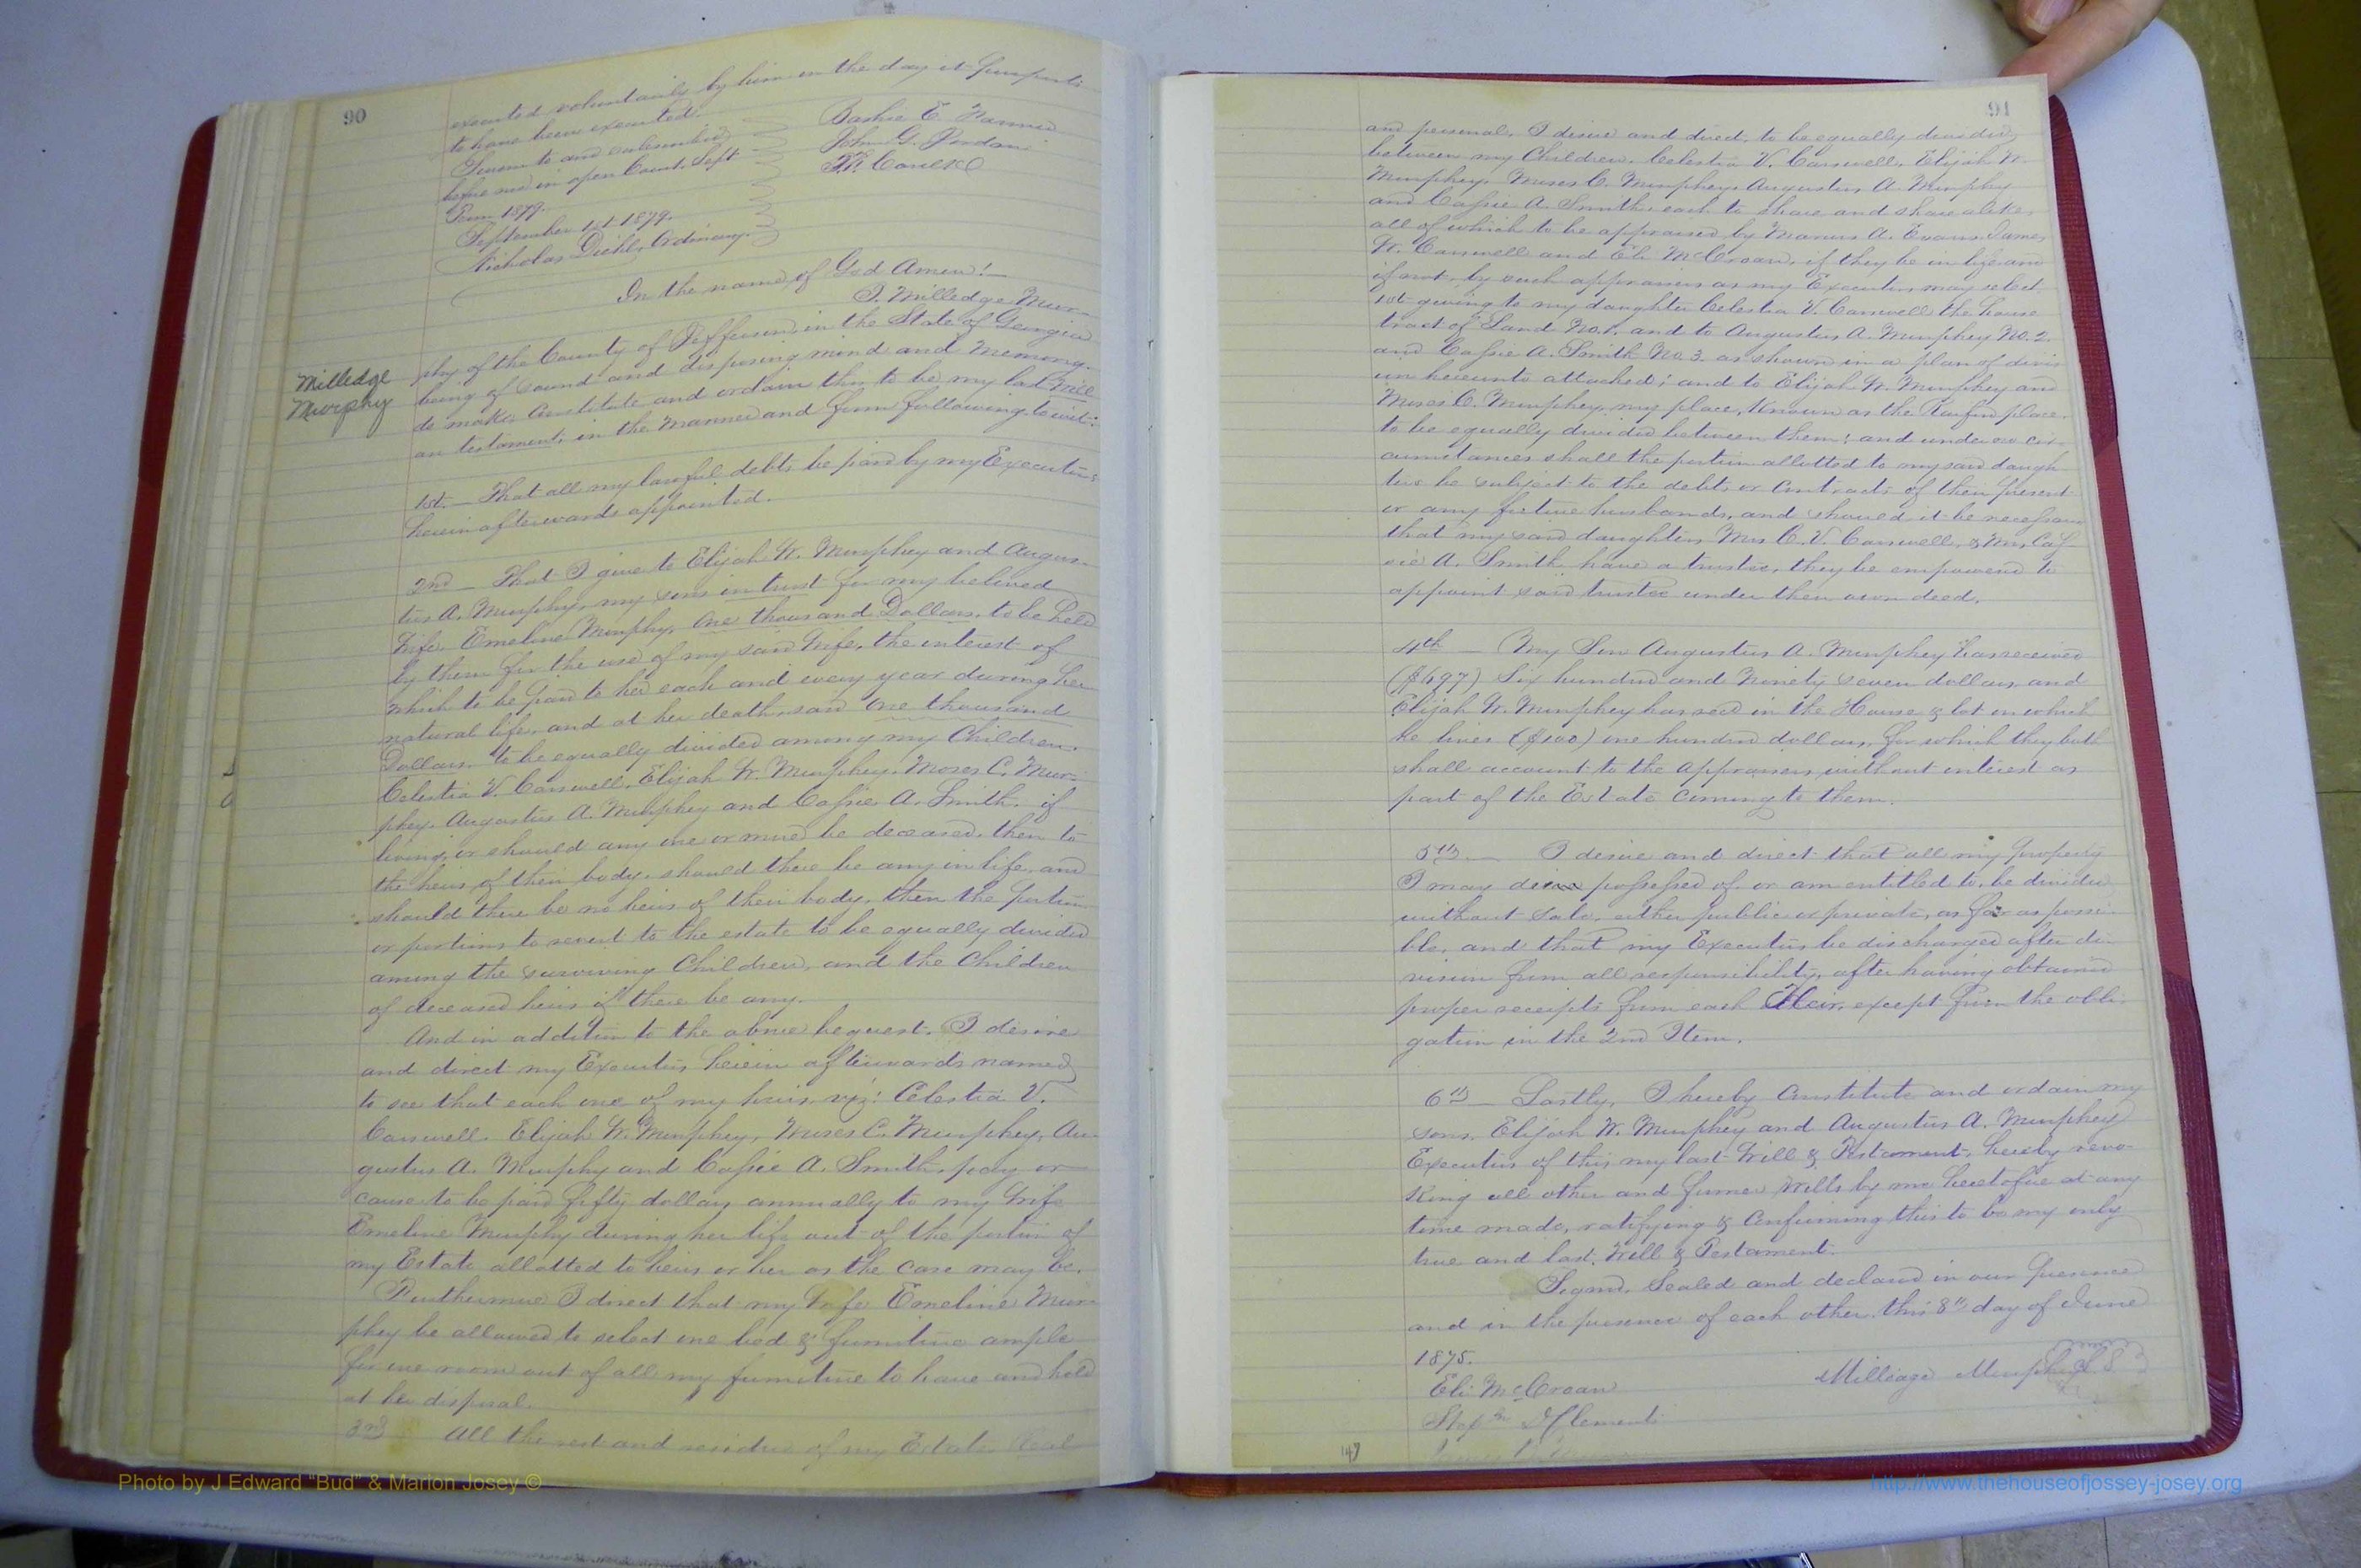 90
executed voluntarily by him on the day it purports
to have been executed.
Sworn to and subscribed
before me in open Court, Sept
Term 1879.
September 1st 1879.
Nicholas Diehl, Ordinary.
John G. Jordan
In the name of God Amen!
I, Milledge Mur-
Milledge
Murphy
phy of the County of Jefferson, in the State of Georgia
being of sound and disposing mind and memory,
do make, constitute and ordain this to be my last Will
an testament, in the manner and form following, to wit:
1st. — That all my lawful debts be paid by my Executors
herein afterwards appointed.
2nd — That I give to Elijah W. Murphey and Augus-
tus A. Murphy, my sons in trust for my beloved
Wife, Emeline Murphy, One thousand Dollars, to be held
by them for the use of my said Wife, the interest of
which to be paid to her each and every year during her
natural life, and at her death, said One thousand
Dollars, to be equally divided among my Children.
Celestia V. Carswell, Elijah W. Murphey, Moses C. Mur-
phey, Augustus A. Murphey and Cassie A. Smith, if
living, or should any one or more be deceased, then to
the heirs of their body, should there be any in life, and
should there be no heirs of their body, then the portion
or portions to revert to the estate to be equally divided
among the surviving Children, and the Children
of deceased heirs if there be any.
And in addition to the above bequest, I desire
and direct my Executors herein afterwards named
to see that each one of my heirs, viz: Celestia V.
Carswell, Elijah W. Murphey, Moses C. Murphey, Au-
gustus A. Murphy and Cassie A. Smith, pay or
cause to be paid fifty dollars annually to my Wife
Emeline Murphy during her life out of the portion of
my Estate allotted to heirs or her as the case may be.
Furthermore I direct that my Wife Emeline Mur-
phey be allowed to select one bed & furniture ample
for one room out of all my furniture to have and hold
at her disposal.
3rd All the rest and residue of my Estate Real
91
and personal, I desire and direct, to be equally divided
between my Children, Celestia V. Carswell, Elijah W.
Murphey, Moses C. Murphey, Augustus A. Murphy
and Cassie A. Smith each to share and share alike,
all of which to be appraised by Marcus A. Evans, James
W. Carswell and Eli McCroan, if they be in life and
if not, by such appraisers as my Executors may select,
1st giving to my daughter Celestia V. Carswell the house
tract of Land No. 1, and to Augustus A. Murphey No. 2.
and Cassie A. Smith No. 3. as shown in a plan of divis
ion hereunto attached; and to Elijah W. Murphey and
Moses C. Murphey, my place, Known as the place,
to be equally divided between them; and under no cir-
cumstances shall the portion allotted to my said daugh
ters be subject to the debts or contracts of their present
or any future husbands, and should it be necessary
that my said daughters Mrs C. V. Carswell, & Mrs Cas-
sie A. Smith have a trustee, they be empowered to
appoint said trustee under their own deed.
4th — My Son Augustus A. Murphey has received
($697) Six hundred and Ninety seven dollars and
Elijah W. Murphey has recd in the House & lot on which
he lives ($100) one hundred dollars, for which they both
shall account to the appraisers without interest as
part of the Estate coming to them.
5th — I desire and direct that all my property
I may die possessed of or am entitled to, be divided
without sale, either public or private, as far as possi-
ble, and that my Executors be discharged after di-
vision from all responsibility, after having obtained
proper receipts from each Heir, except from the obli-
gation in the 2nd Item.
6th — Lastly, I hereby constitute and ordain my
sons, Elijah W. Murphey and Augustus A. Murphey
Executors of this my last Will & Testament, hereby revo-
king all other and former Wills by me heretofore at any
time made, ratifying & confirming this to be my only
true and last, Will & Testament.
Signed, Sealed and declared in our presence
and in the presence of each other, this 8th day of June
1875.
Milledge Murphey LS
Eli McCroan
147
Photo by J Edward "Bud" & Marion Josey ©
http://www.thehouseofjossey-josey.org